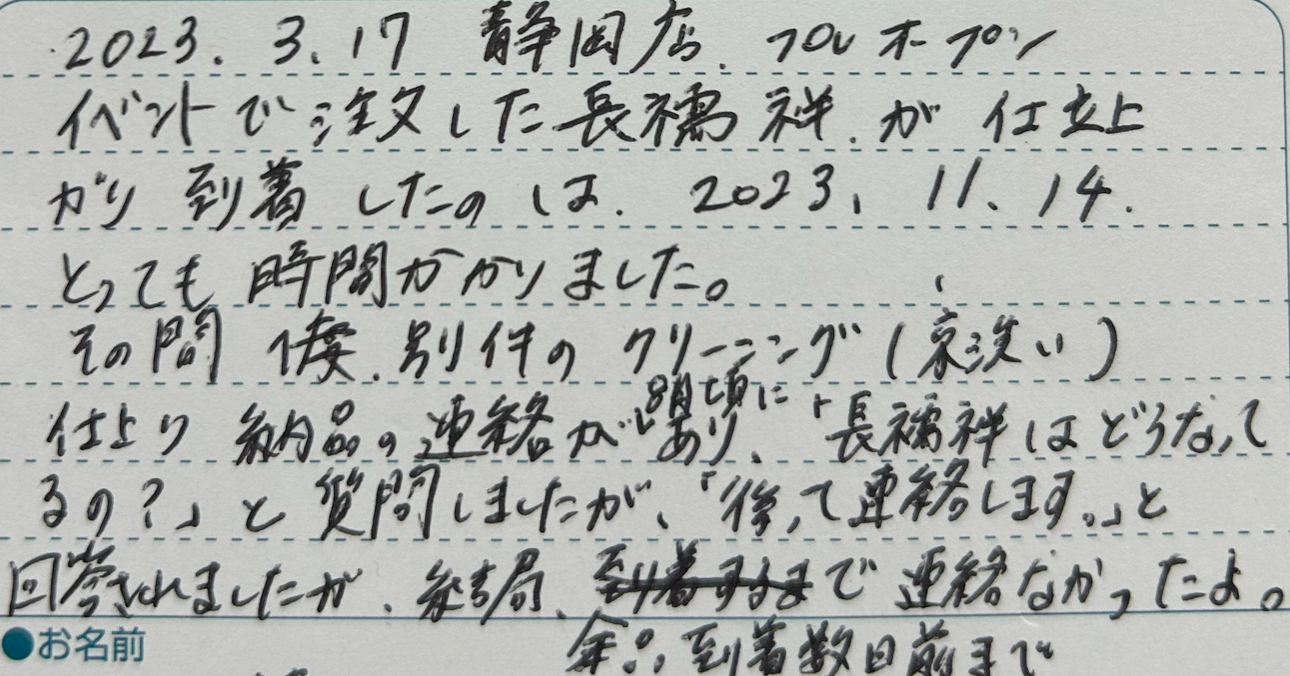 2023.3.17 静岡店.プレオープン
イベントで注文した長襦袢.が仕立上
がり到着したのは.2023.11.14.
とっても時間かかりました。
その間 1度.別件のクリーニング(京洗い)
仕上り納品の連絡が8月頃にあり、「長襦袢はどうなって
るの?」と質問しましたが、「後って連絡します。」と
回答されましたが、結局、到着するまで連絡なかったよ。
到着数日前まで
●お名前